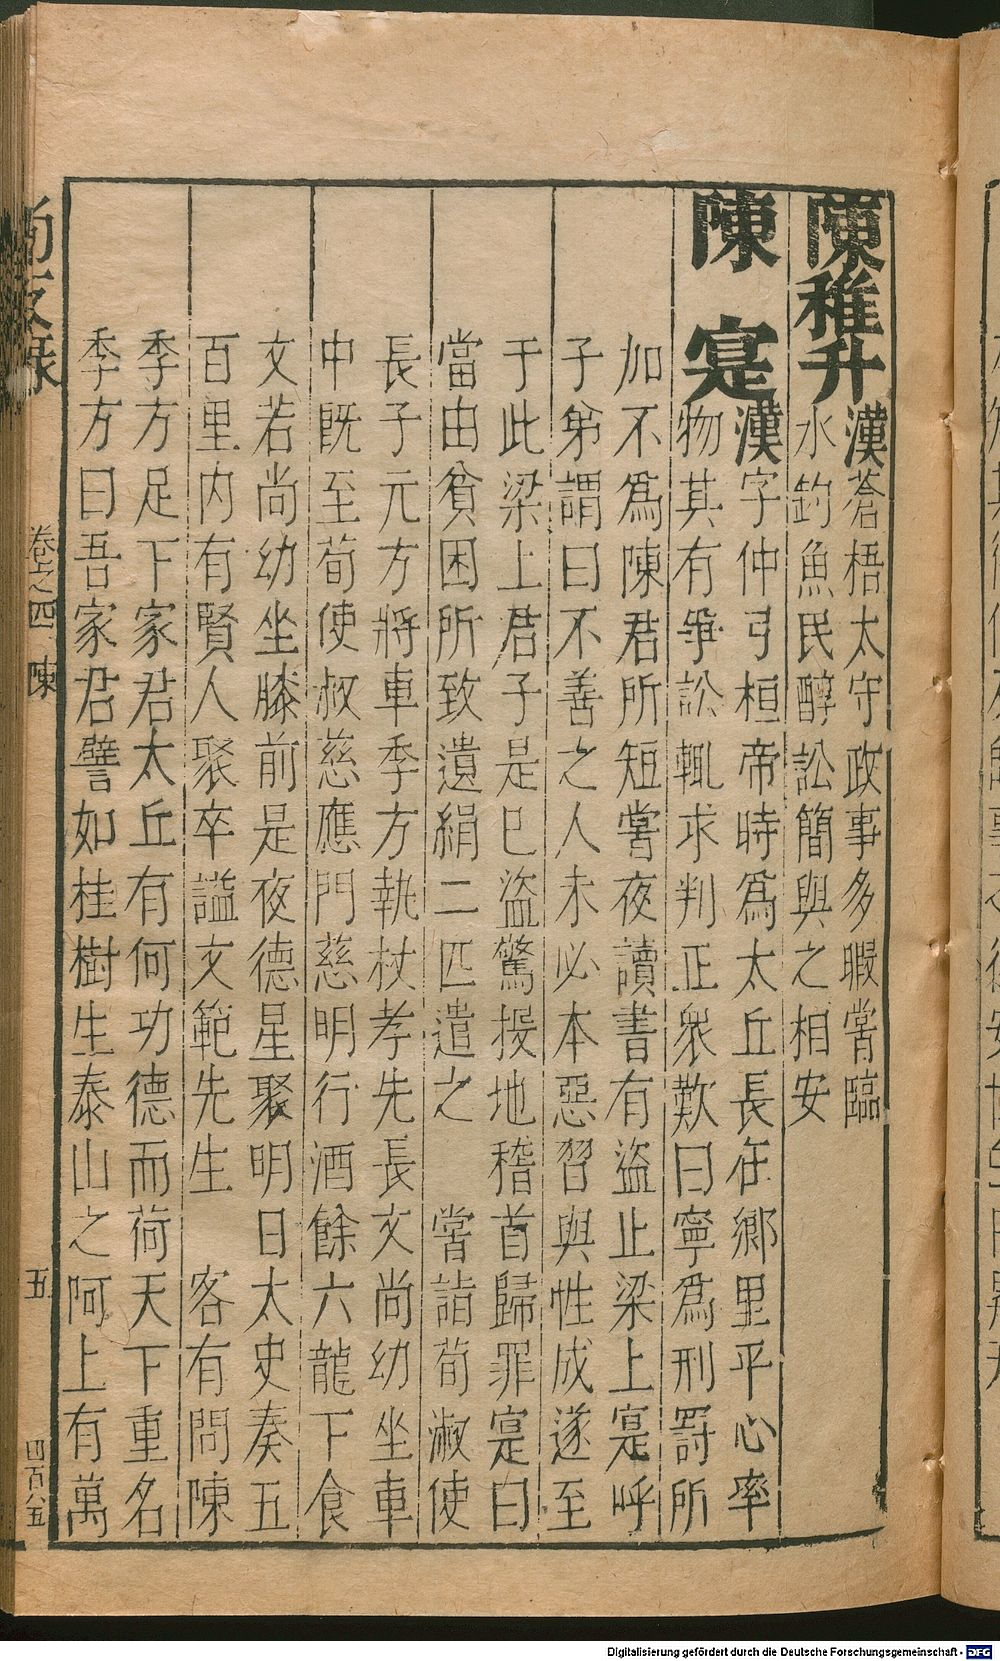 陳稚升
漢蒼梧太守政事多暇嘗臨
水釣魚民醇訟簡與之相安
陳寔
漢字仲弓桓帝時爲太丘長在鄉里平心率
物其有爭訟輒求判正衆歎曰寧爲刑罸所
加不爲陳君所短嘗夜讀書有盜止梁上寔呼
子弟謂曰不善之人未必本惡習與性成遂至
于此梁上君子是巳盜驚投地稽首歸罪寔曰
當由貧困所致遺絹二匹遣之　嘗詣荀淑使
長子元方將車季方執杖孝先長文尚幼坐車
中既至荀使叔慈應門慈明行酒餘六龍下食
文若尚幼坐膝前是夜德星聚明日太史奏五
百里內有賢人聚卒謚文範先生　客有問陳
季方足下家君太丘有何功德而荷天下重名
季方曰吾家君譬如桂樹生泰山之阿上有萬
尚友錄　卷之四　陳　五　四百八五
Digitalisierung gefördert durch die Deutsche Forschungsgemeinschaft - DFG